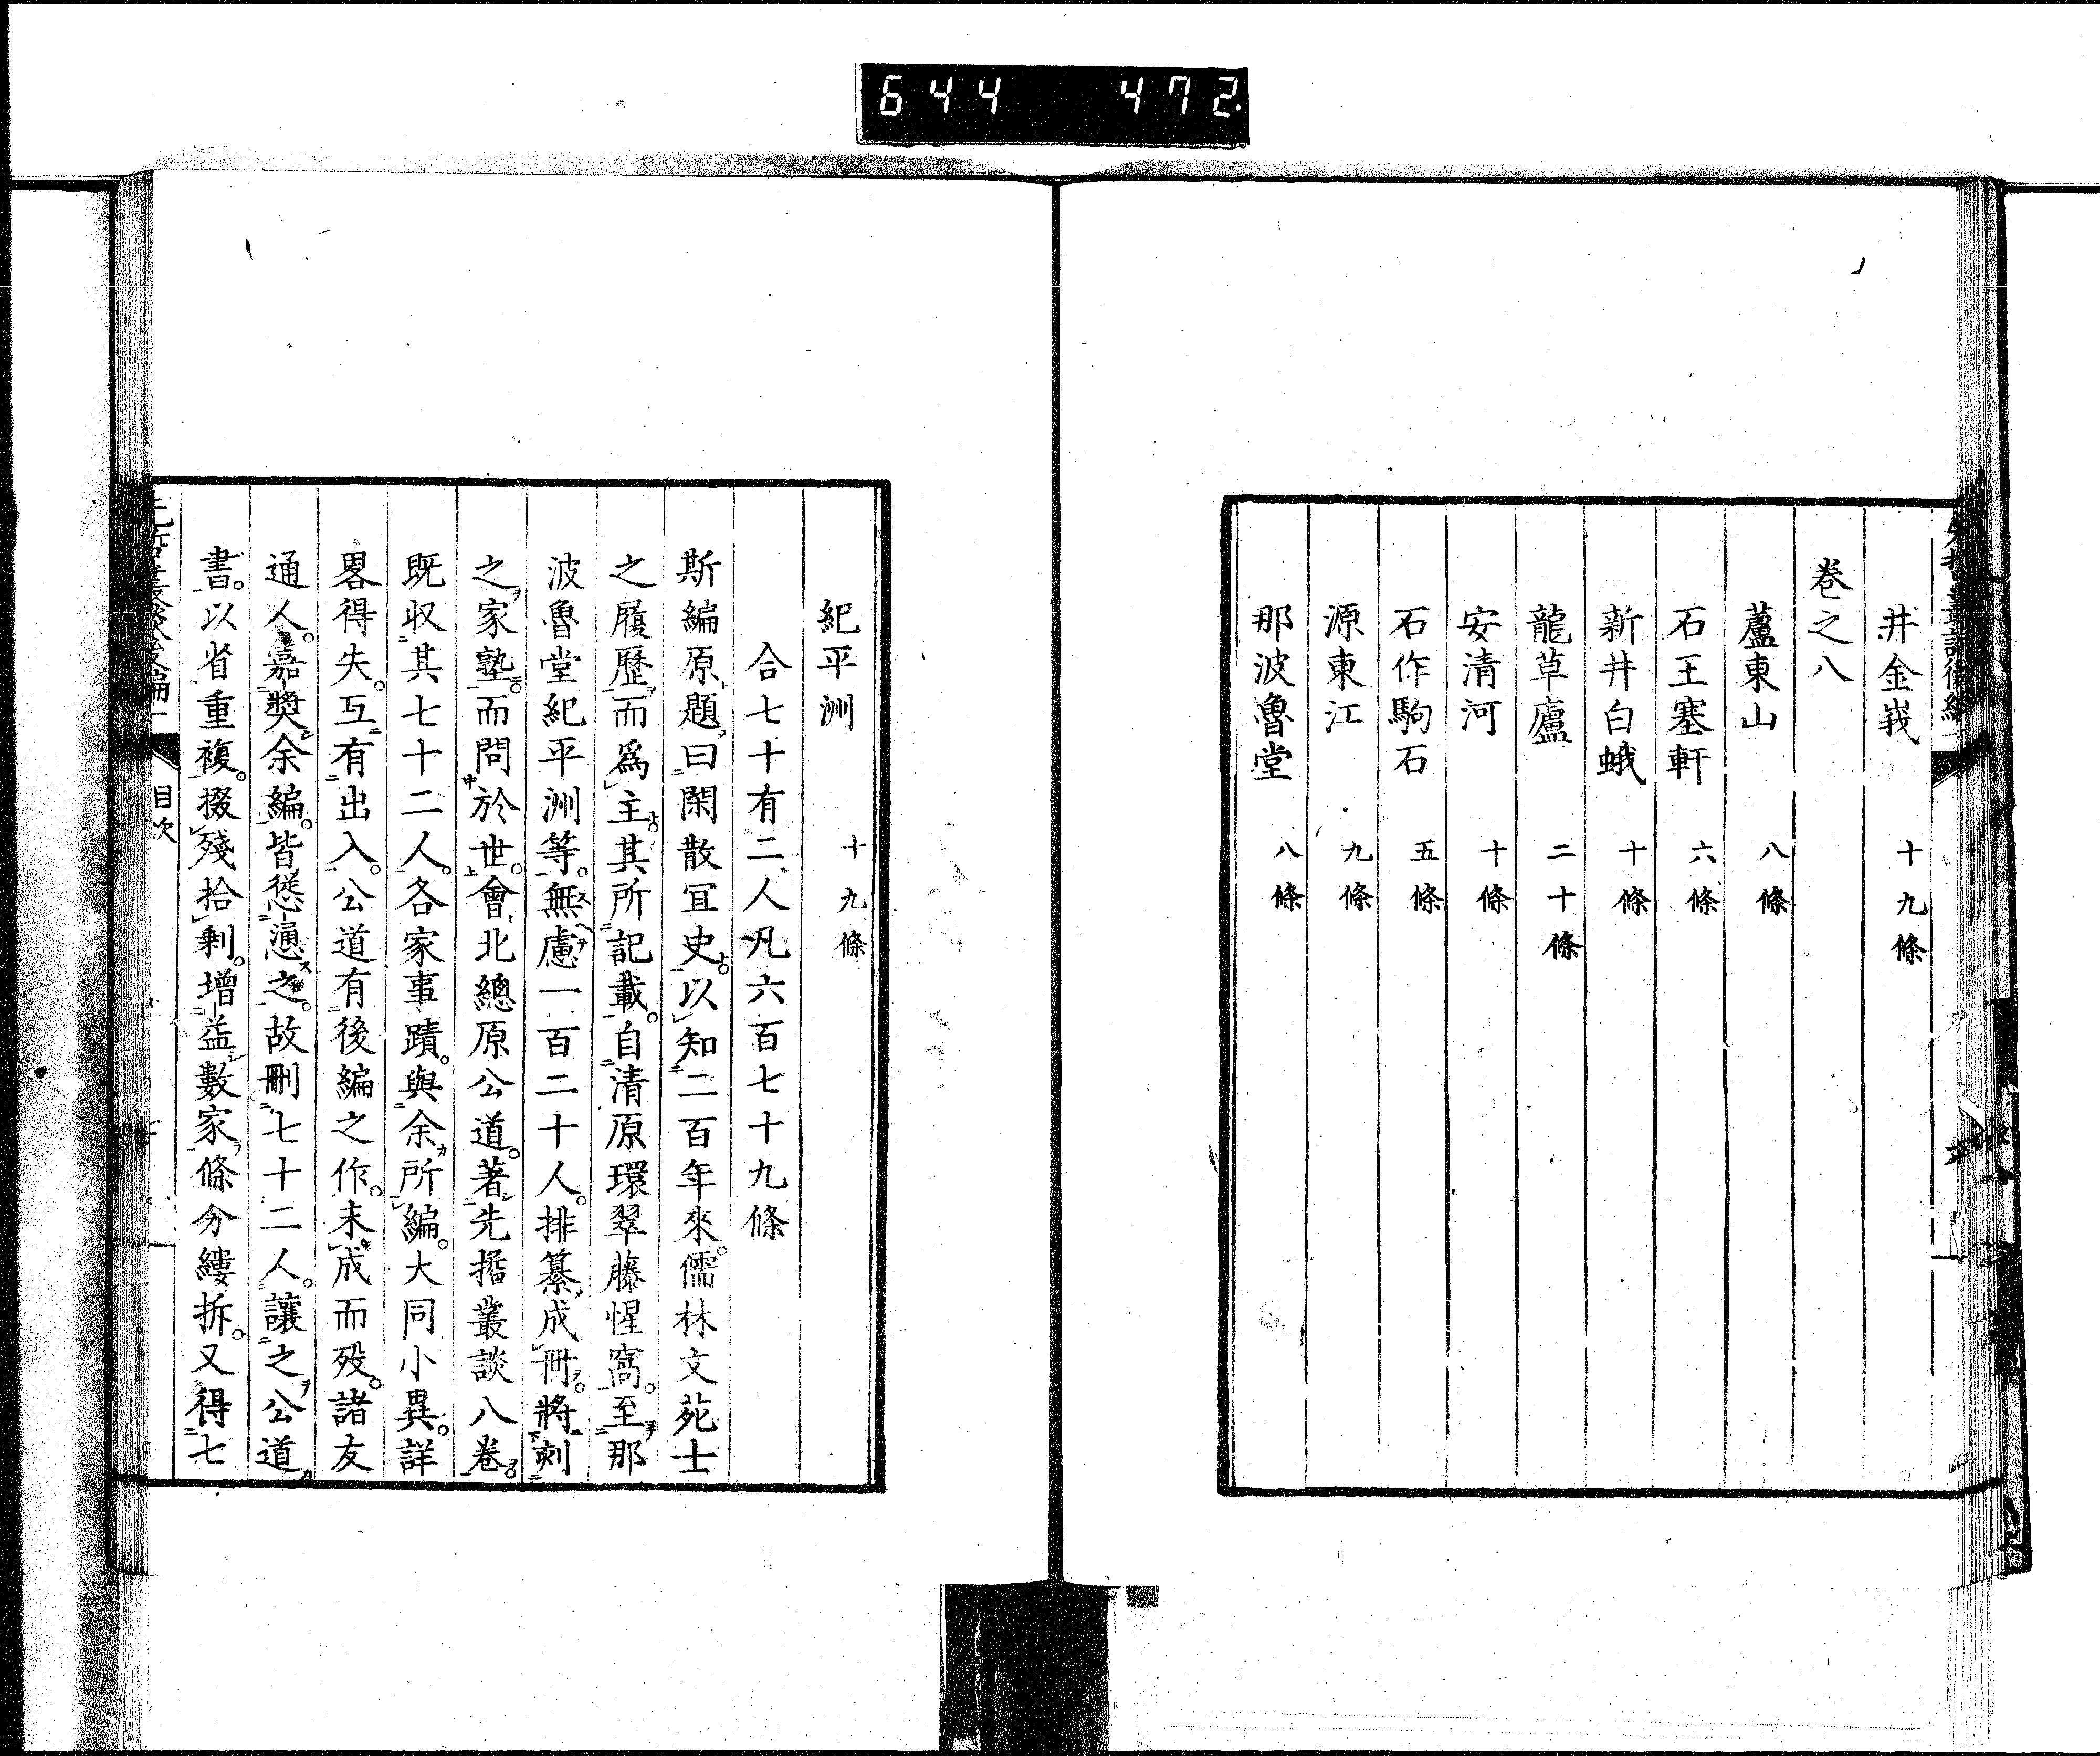 644 472
井金峩 十九條
卷之八
蘆東山 八條
石王塞軒 六條
新井白蛾 十條
龍草廬 二十條
安清河 十條
石作駒石 五條
源東江 九條
那波魯堂 八條
紀平洲 十九條
合七十有二人凡六百七十九條
斯編原題曰閑散冝史以知二百年來儒林文苑士
之履歷而爲主其所記載自清原環翠藤惺窩至那
波魯堂紀平洲等無慮一百二十人排纂成冊將刻
之家塾而問於世會北總原公道著先𢮦叢談八卷
既収其七十二人各家事蹟與余所編大同小異詳
畧得失互有出入公道有後編之作未成而歿諸友
通人嘉奬余編皆慫慂之故刪七十二人讓之公道
書以省重複掇殘拾剩增益數家條分縷拆又得七
目次